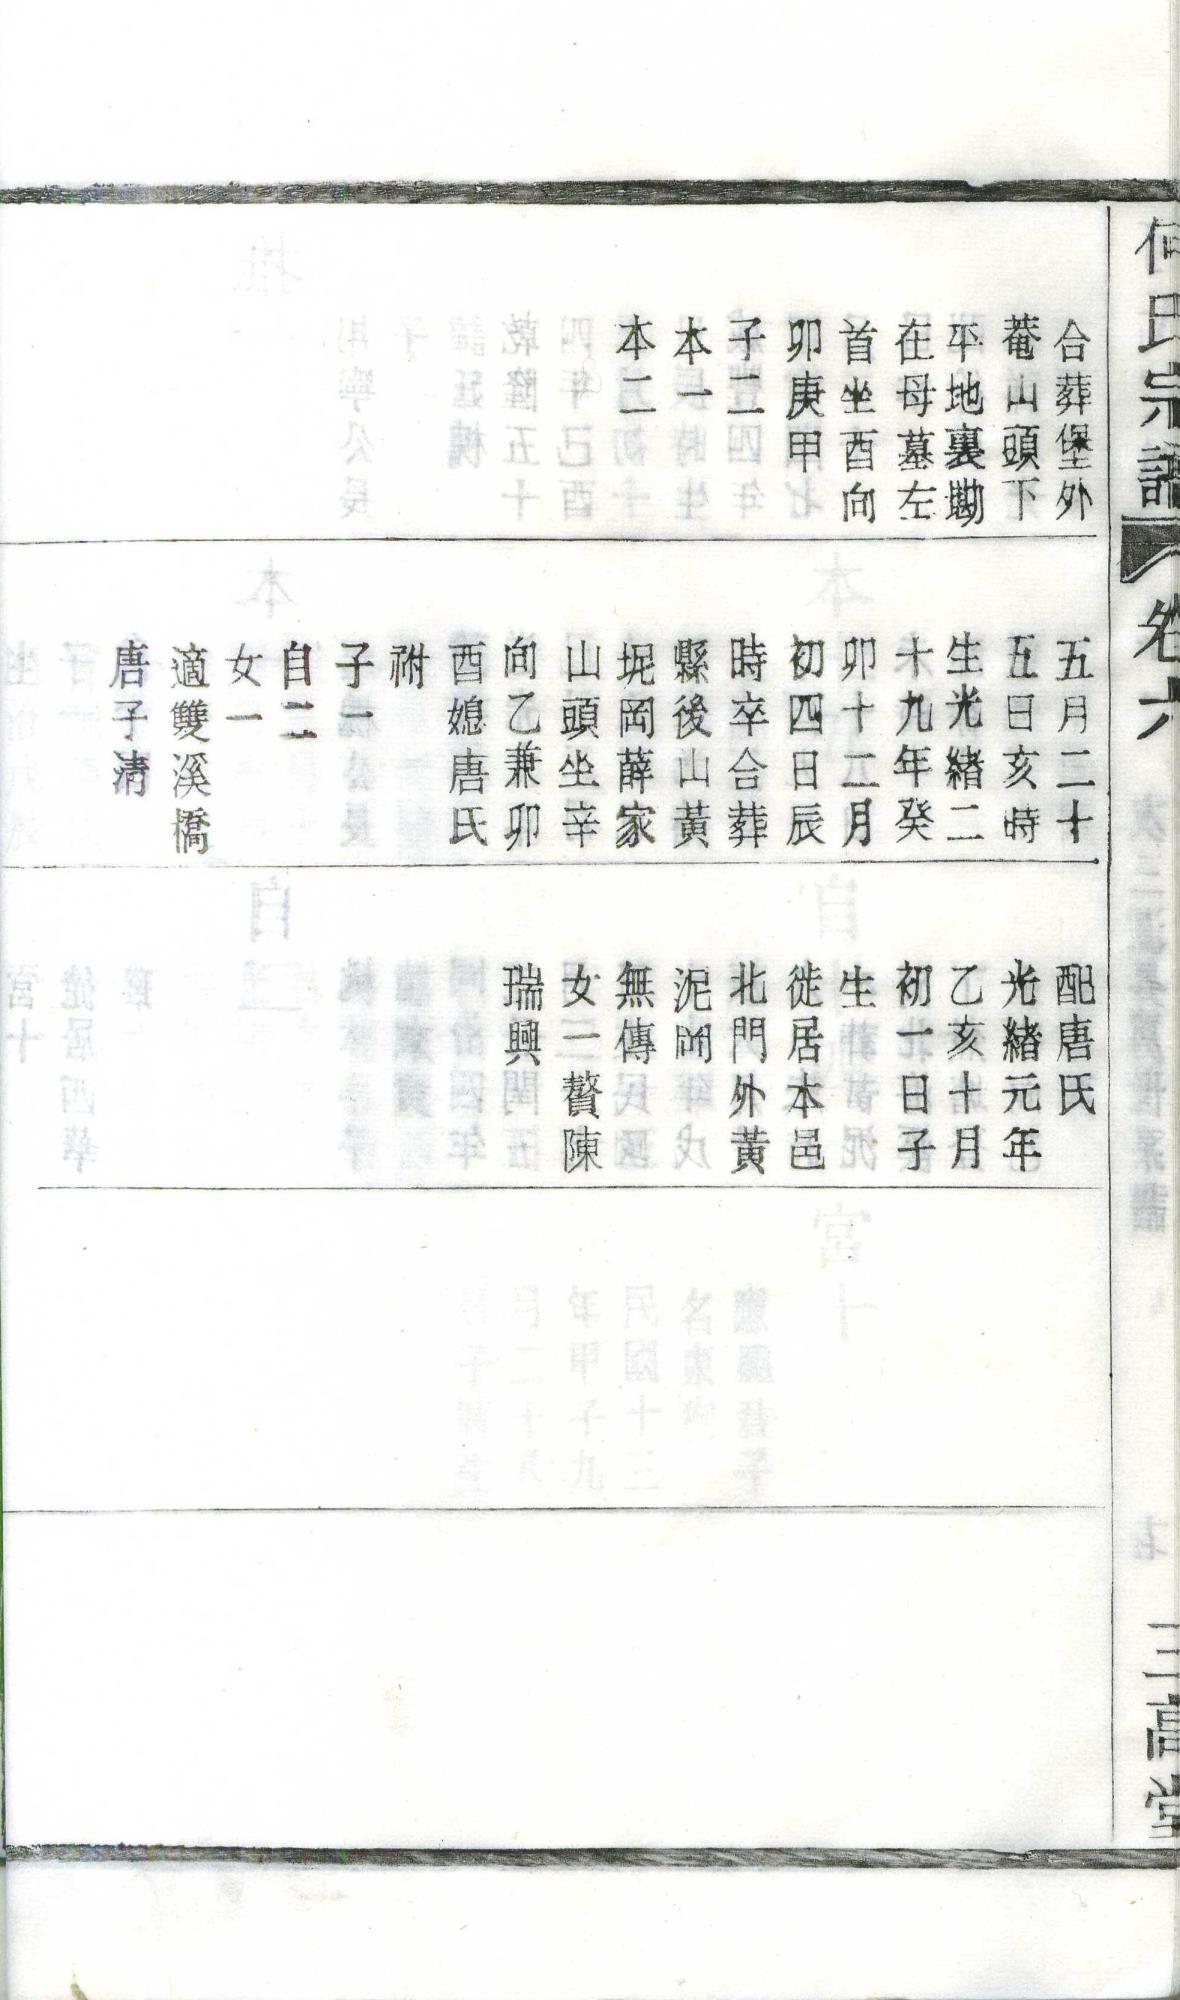 何氏宗譜
卷六
三高堂
合葬堡外
菴山頭下
平地裏勘
在母墓左
首坐酉向
卯庚甲
子二
本一
本二
五月二十
五日亥時
生光緒二
十九年癸
卯十二月
初四日辰
時卒合葬
縣後山黃
坭岡薛家
山頭坐辛
向乙兼卯
酉媳唐氏
祔
子一
自二
女一
適雙溪橋
唐子清
配唐氏
光緒元年
乙亥十月
初一日子
生
徙居本邑
北門外黃
泥岡
無傳
女一贅陳
瑞興